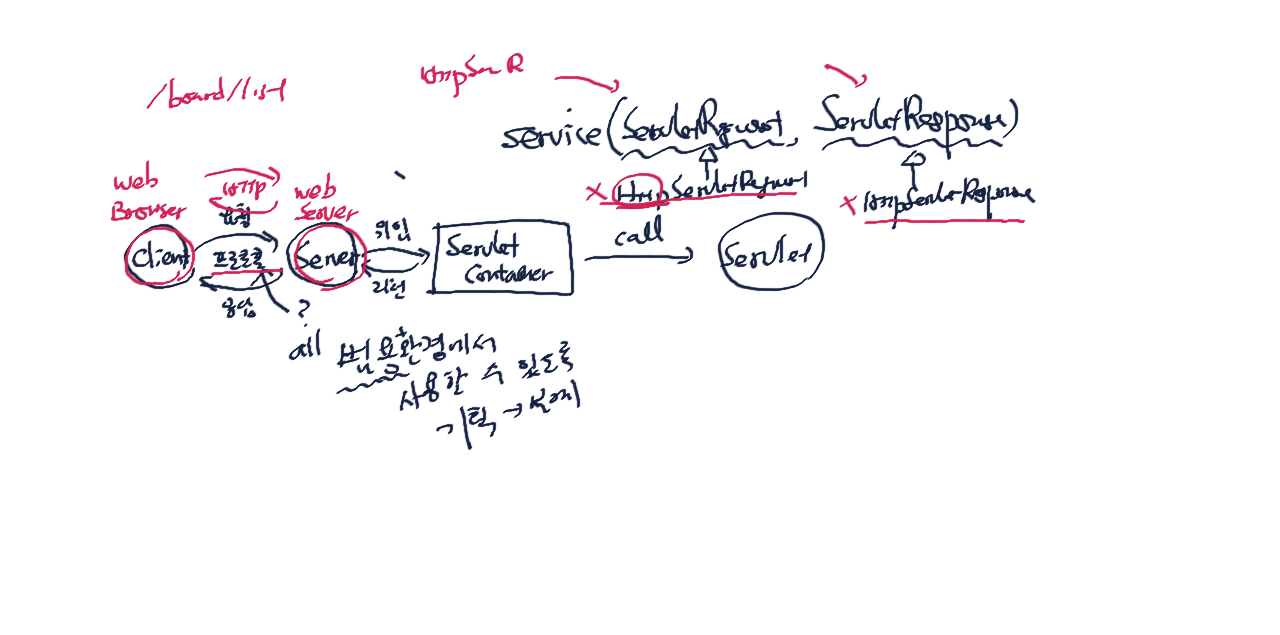 /board/list
HttpSer R
service(ServletRequest, ServletResponse)
× HttpServletRequest
× HttpServletResponse
web
Browser
HTTP
요청
web
Server
Client
프로토콜
Server
위임
리턴
Servlet
Container
call
Servlet
응답
?
all 범용환경에서
사용할 수 있도록
기획 → 설계